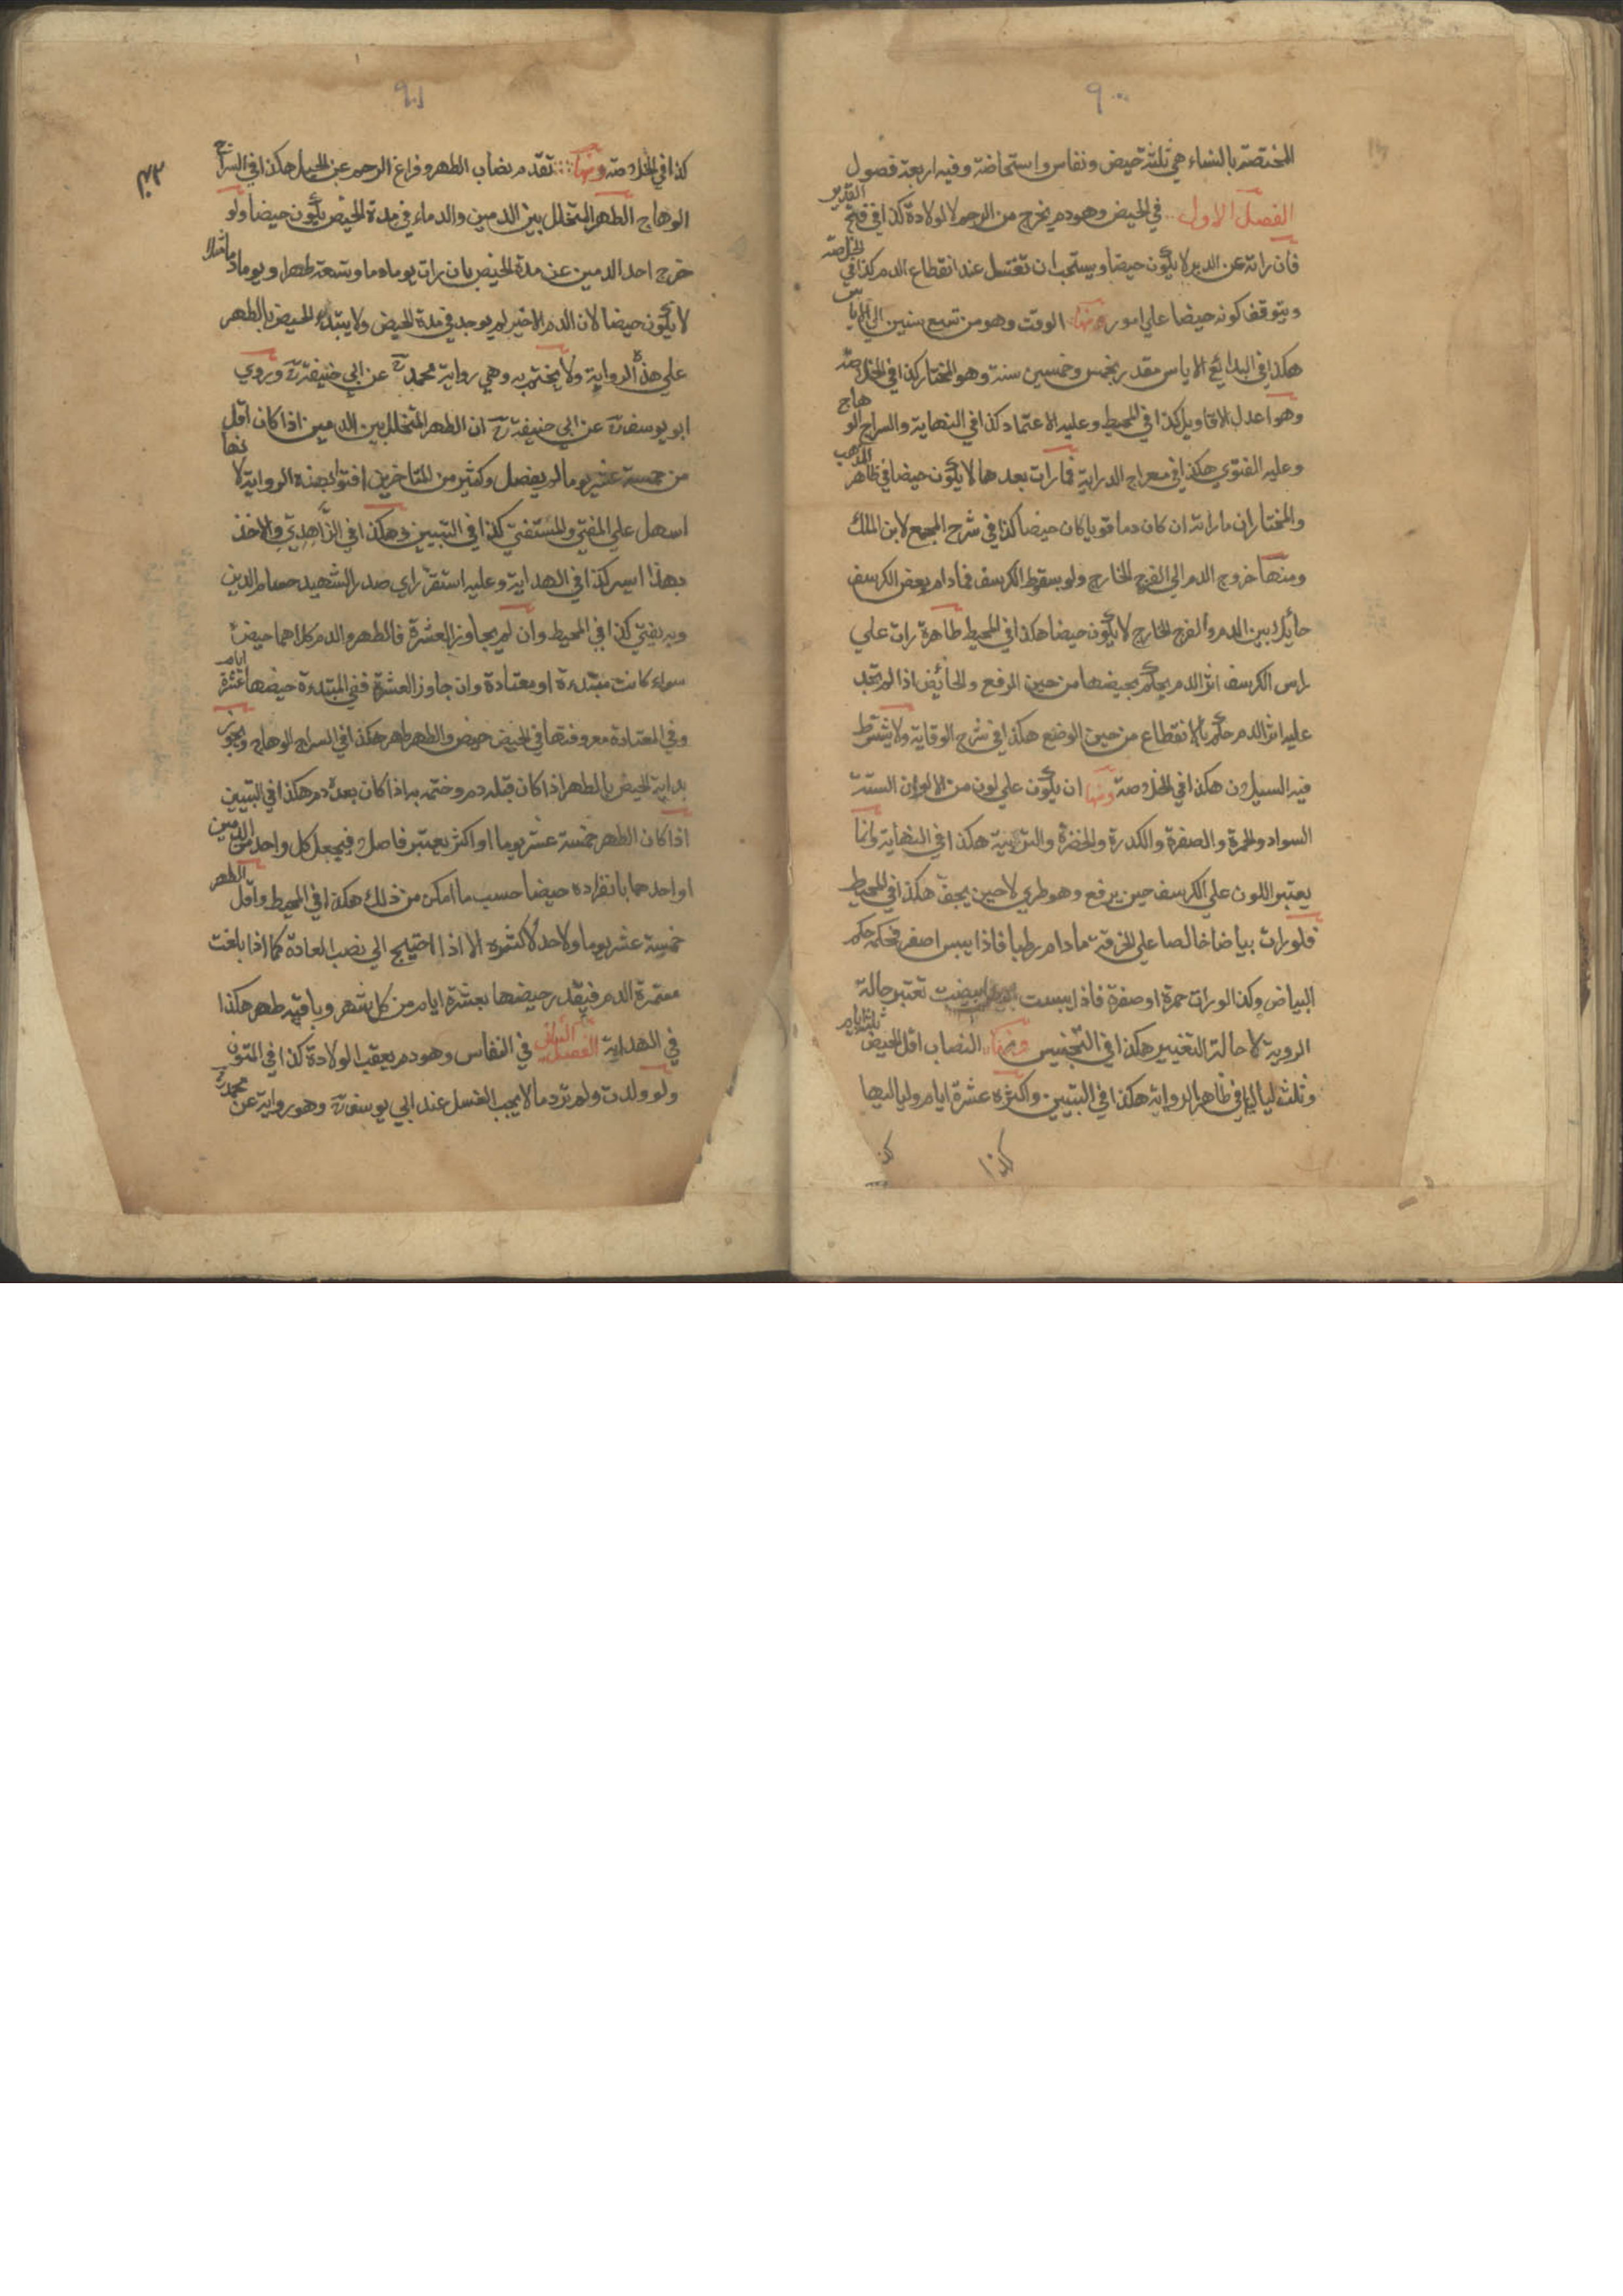 ٩٠٠
المختصة بالنساء هي ثلثة حيض ونفاس واستحاضة وفيه اربعة فصول
الفصل الاول في الحيض وهو دم يخرج من الرحم لا لولادة كذا في فتح القدير
فان راته عن الدبر لا يكون حيضا ويستحب ان تغتسل عند انقطاع الدم كذا في الخلاصة
ويتوقف كونه حيضا علي امور منها الوقت وهو من تسع سنين الي الاياس
هكذا في البدائع الاياس مقدر بخمس وخمسين سنة وهو المختار كذا في الخلاصة
وهو اعدل الاقاويل كذا في المحيط وعليه الاعتماد كذا في النهاية والسراج الوهاج
وعليه الفتوي هكذا في معراج الدراية فما رات بعدها لا يكون حيضا في ظاهر المذهب
والمختار ان ما راته ان كان دما قويا كان حيضا كذا في شرح المجمع لابن الملك
ومنها خروج الدم الي الفرج الخارج ولو بسقوط الكرسف فما دام بعض الكرسف
حايك بين الدم والفرج الخارج لا يكون حيضا هكذا في المحيط طاهرة رات علي
راس الكرسف اثر الدم يحكم بحيضها من حين الرفع والحائض اذا لم تجد
عليه اثر الدم حكم بالانقطاع من حين الوضع هكذا في شرح الوقاية ولا يشترط
فيه السيلان هكذا في الخلاصة ومنها ان يكون علي لون من الالوان الستة
السواد والحمرة والصفرة والكدرة والخضرة والتربية هكذا في النهاية وانما
يعتبر اللون علي الكرسف حين يرفع وهو طري لا حين يجف هكذا في المحيط
فلو رات بياضا خالصا علي الخرقة ما دام رطبا فاذا يبس اصفر فحكمه حكم
البياض وكذا لو رات حمرة او صفرة فاذا يبست ابيضت تعتبر حالة
الروية لا حالة التغيير هكذا في التجنيس ومنها النصاب اقل الحيض ثلثة ايام
وثلث ليال في ظاهر الرواية هكذا في التبيين واكثره عشرة ايام ولياليها
كذا
٩٠١
كذا في الخلاصة ومنها تقدم نصاب الطهر وفراغ الرحم عن الحبل هكذا في السراج
الوهاج الطهر المتخلل بين الدمين والدماء في مدة الحيض يكون حيضا ولو
خرج احد الدمين عن مدة الحيض بان رات يوما دما وتسعة طهرا ويوما دما مثلا
لا يكون حيضا لان الدم الاخير لم يوجد في مدة الحيض ولا يبتدء الحيض بالطهر
علي هذه الرواية ولا يختم به وهي رواية محمد عن ابي حنيفة وروي
ابو يوسف عن ابي حنيفة ان الطهر المتخلل بين الدمين اذا كان اقل
من خمسة عشر يوما لم يفصل وكثير من المتاخرين افتوا بهذه الرواية لانها
اسهل علي المفتي والمستفتي كذا في التبيين وهكذا في الزاهدي والاخذ
بهذا ايسر كذا في الهداية وعليه استقر راي صدر الشهيد حسام الدين
وبه يفتي كذا في المحيط وان لم يجاوز العشرة فالطهر والدم كلاهما حيض
سواء كانت مبتدءة او معتادة وان جاوز العشرة ففي المبتدءة حيضها عشرة ايام
وفي المعتادة معروفتها في الحيض حيض والطهر طهر هكذا في السراج الوهاج ويجوز
بداية الحيض بالطهر اذا كان قبله دم وختمه به اذا كان بعده دم هكذا في التبيين
اذا كان الطهر خمسة عشر يوما او اكثر يعتبر فاصلا فيجعل كل واحد من الدمين
او احدهما بانفراده حيضا حسب ما امكن من ذلك هكذا في المحيط واقل الطهر
خمسة عشر يوما ولا حد لاكثره الا اذا احتيج الي نصب العادة كما اذا بلغت
مستمرة الدم فيقدر حيضها بعشرة ايام من كل شهر وباقيه طهر هكذا
في الهداية الفصل الثاني في النفاس وهو دم يعقب الولادة كذا في المتون
ولو ولدت ولم تر دما لا يجب الغسل عند ابي يوسف وهو رواية عن محمد